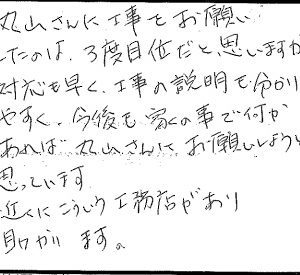 丸山さんに工事をお願い
したのは、3度目位だと思いますが
対応も早く、工事の説明も分かり
やすく、今後も家の事で何か
あれば丸山さんにお願いしようと
思っています
近くにこういう工務店があり
助かります。